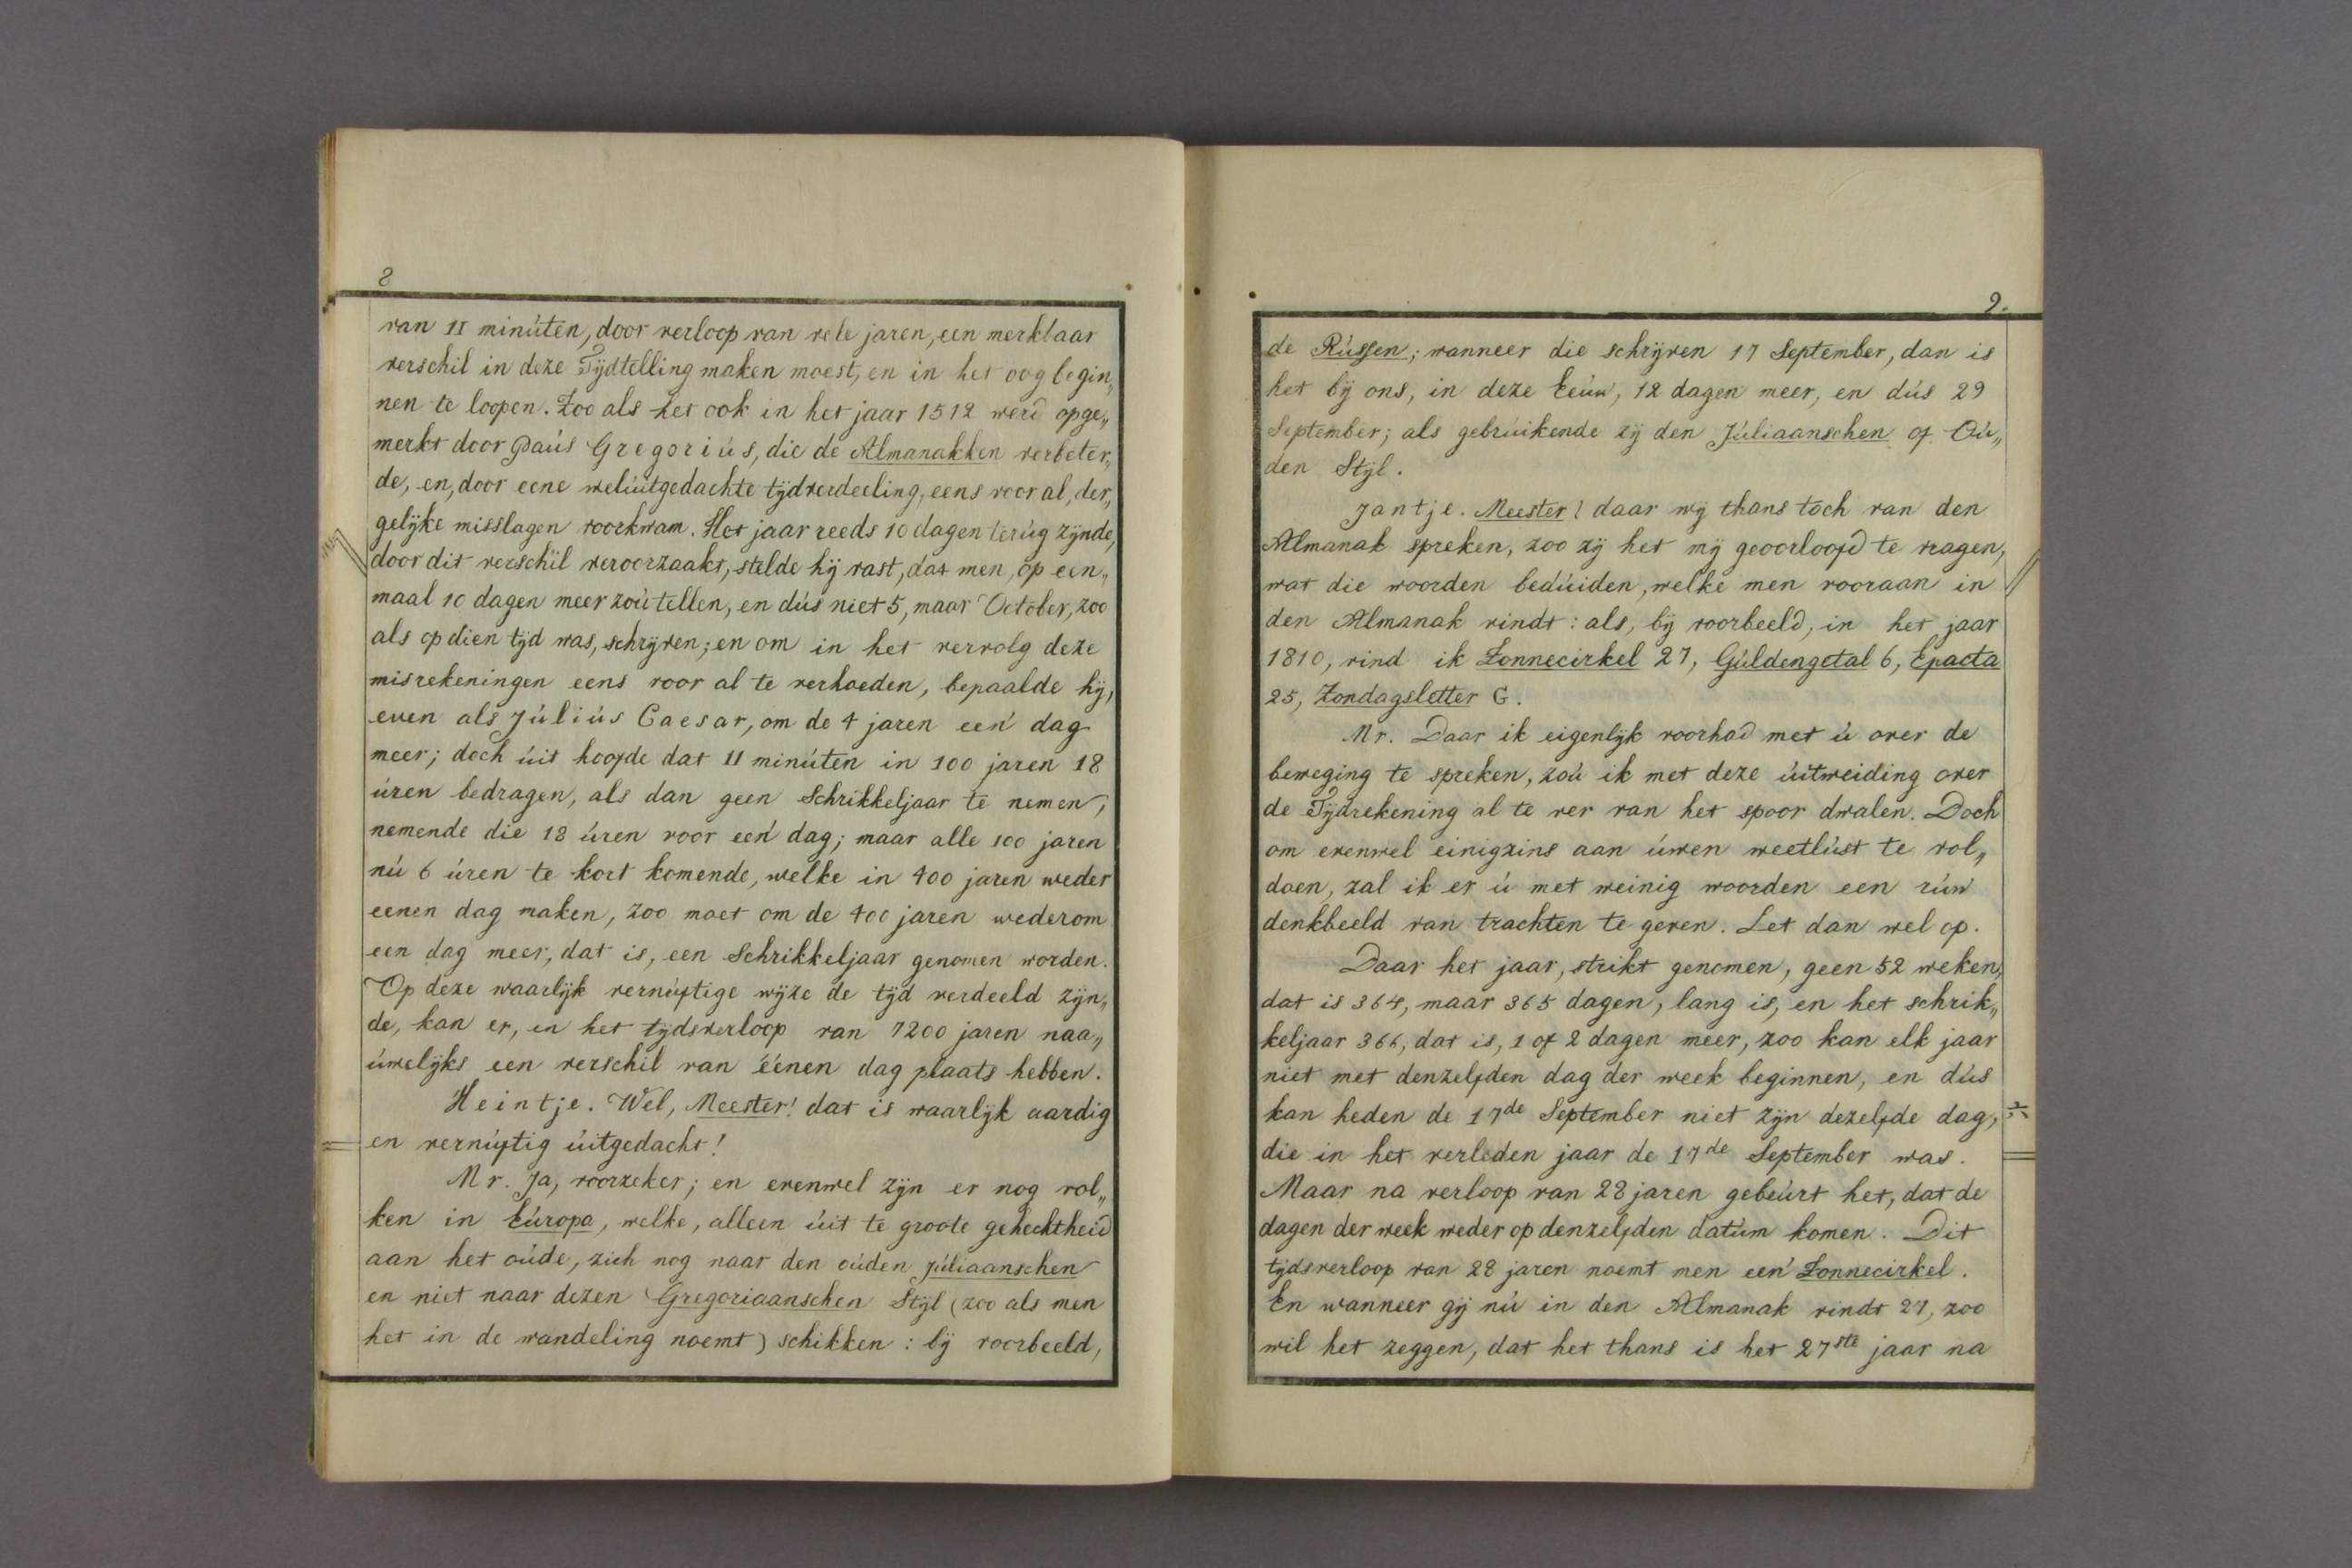 8
van 11 minúten, door verloop van vele jaren, een merkbaar
verschil in deze Tijdtelling maken moest, en in het oog begin„
nen te loopen. Zoo als het ook in het jaar 1512 werd opge„
merkt door Paús Gregoriús, die de Almanakken verbeter„
de, en, door eene welúitgedachte tijdverdeeling, eens voor al, der„
gelijke misslagen voorkwam. Het jaar reeds 10 dagen terúg zijnde,
door dit verschil veroorzaakt, stelde hij vast, dat men, op een„
maal 10 dagen meer zoú tellen, en dús niet 5, maar October, zoo
als op dien tijd was, schrijven; en om in het vervolg deze
misrekeningen eens voor al te verhoeden, bepaalde hij,
even als Júliús Caesar, om de 4 jaren een' dag
meer; doch úit hoofde dat 11 minúten in 100 jaren 18
úren bedragen, als dan geen Schrikkeljaar te nemen,
nemende die 18 úren voor een' dag; maar alle 100 jaren
nú 6 úren te kort komende, welke in 400 jaren weder
eenen dag maken, zoo moet om de 400 jaren wederom
een dag meer, dat is, een Schrikkeljaar genomen worden.
Op deze waarlijk vernúftige wijze de tijd verdeeld zijn„
de, kan er, in het tijdsverloop van 7200 jaren naa„
úwelijks een verschil van éénen dag plaats hebben.
Heintje. Wel, Meester! dat is waarlijk aardig
en vernúftig úitgedacht!
Mr. Ja, voorzeker; en evenwel zijn er nog vol„
ken in Eúropa, welke, alleen úit te groote gehechtheid
aan het oúde, zich nog naar den oúden Júliaanschen
en niet naar dezen Gregoriaanschen Stijl (zoo als men
het in de wandeling noemt) schikken: bij voorbeeld,
9.
de Rússen; wanneer die schrijven 17 September, dan is
het bij ons, in deze Eeúw, 12 dagen meer, en dús 29
September; als gebrúikende zij den Júliaanschen of Oú„
den Stijl.
Jantje. Meester! daar wij thans toch van den
Almanak spreken, zoo zij het mij geoorloofd te vragen,
wat die woorden bedúiden, welke men vooraan in
den Almanak vindt: als, bij voorbeeld, in het jaar
1810, vind ik Zonnecirkel 27, Gúldengetal 6, Epacta
25, Zondagsletter G.
Mr. Daar ik eigenlijk voorhad met ú over de
beweging te spreken, zoú ik met deze úitweiding over
de Tijdrekening al te ver van het spoor dwalen. Doch
om evenwel einigzins aan úwen weetlúst te vol„
doen, zal ik er ú met weinig woorden een rúw
denkbeeld van trachten te geven. Let dan wel op.
Daar het jaar, strikt genomen, geen 52 weken,
dat is 364, maar 365 dagen, lang is, en het schrik„
keljaar 366, dat is, 1 of 2 dagen meer, zoo kan elk jaar
niet met denzelfden dag der week beginnen, en dús
kan heden de 17de September niet zijn dezelfde dag,
die in het verleden jaar de 17de September was.
Maar na verloop van 28 jaren gebeúrt het, dat de
dagen der week weder op denzelfden datúm komen. Dit
tijdsverloop van 28 jaren noemt men een' Zonnecirkel.
En wanneer gij nú in den Almanak vindt 27, zoo
wil het zeggen, dat het thans is het 27ste jaar na